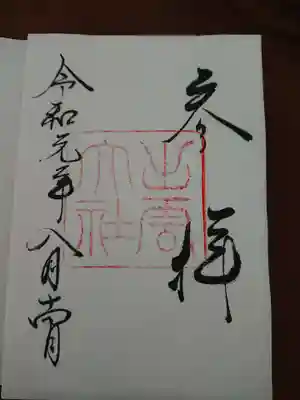 参拝
出雲
大社
令和元年八月